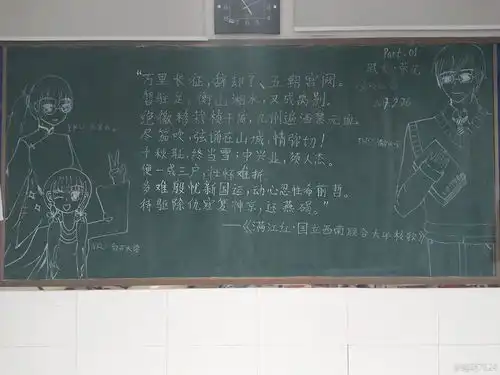 Part.01
“万里长征，辞却了、五朝宫阙。
暂驻足，衡山湘水，又成离别。
绝徼移栽桢干质，九州遍洒黎元血。
尽笳吹，弦诵在山城，情弥切！
千秋耻，终当雪；中兴业，须人杰。
便一成三户，壮怀难折。
多难殷忧新国运，动心忍性希前哲。
待驱除仇寇复神京，还燕碣。”
——《满江红·国立西南联合大学校歌》